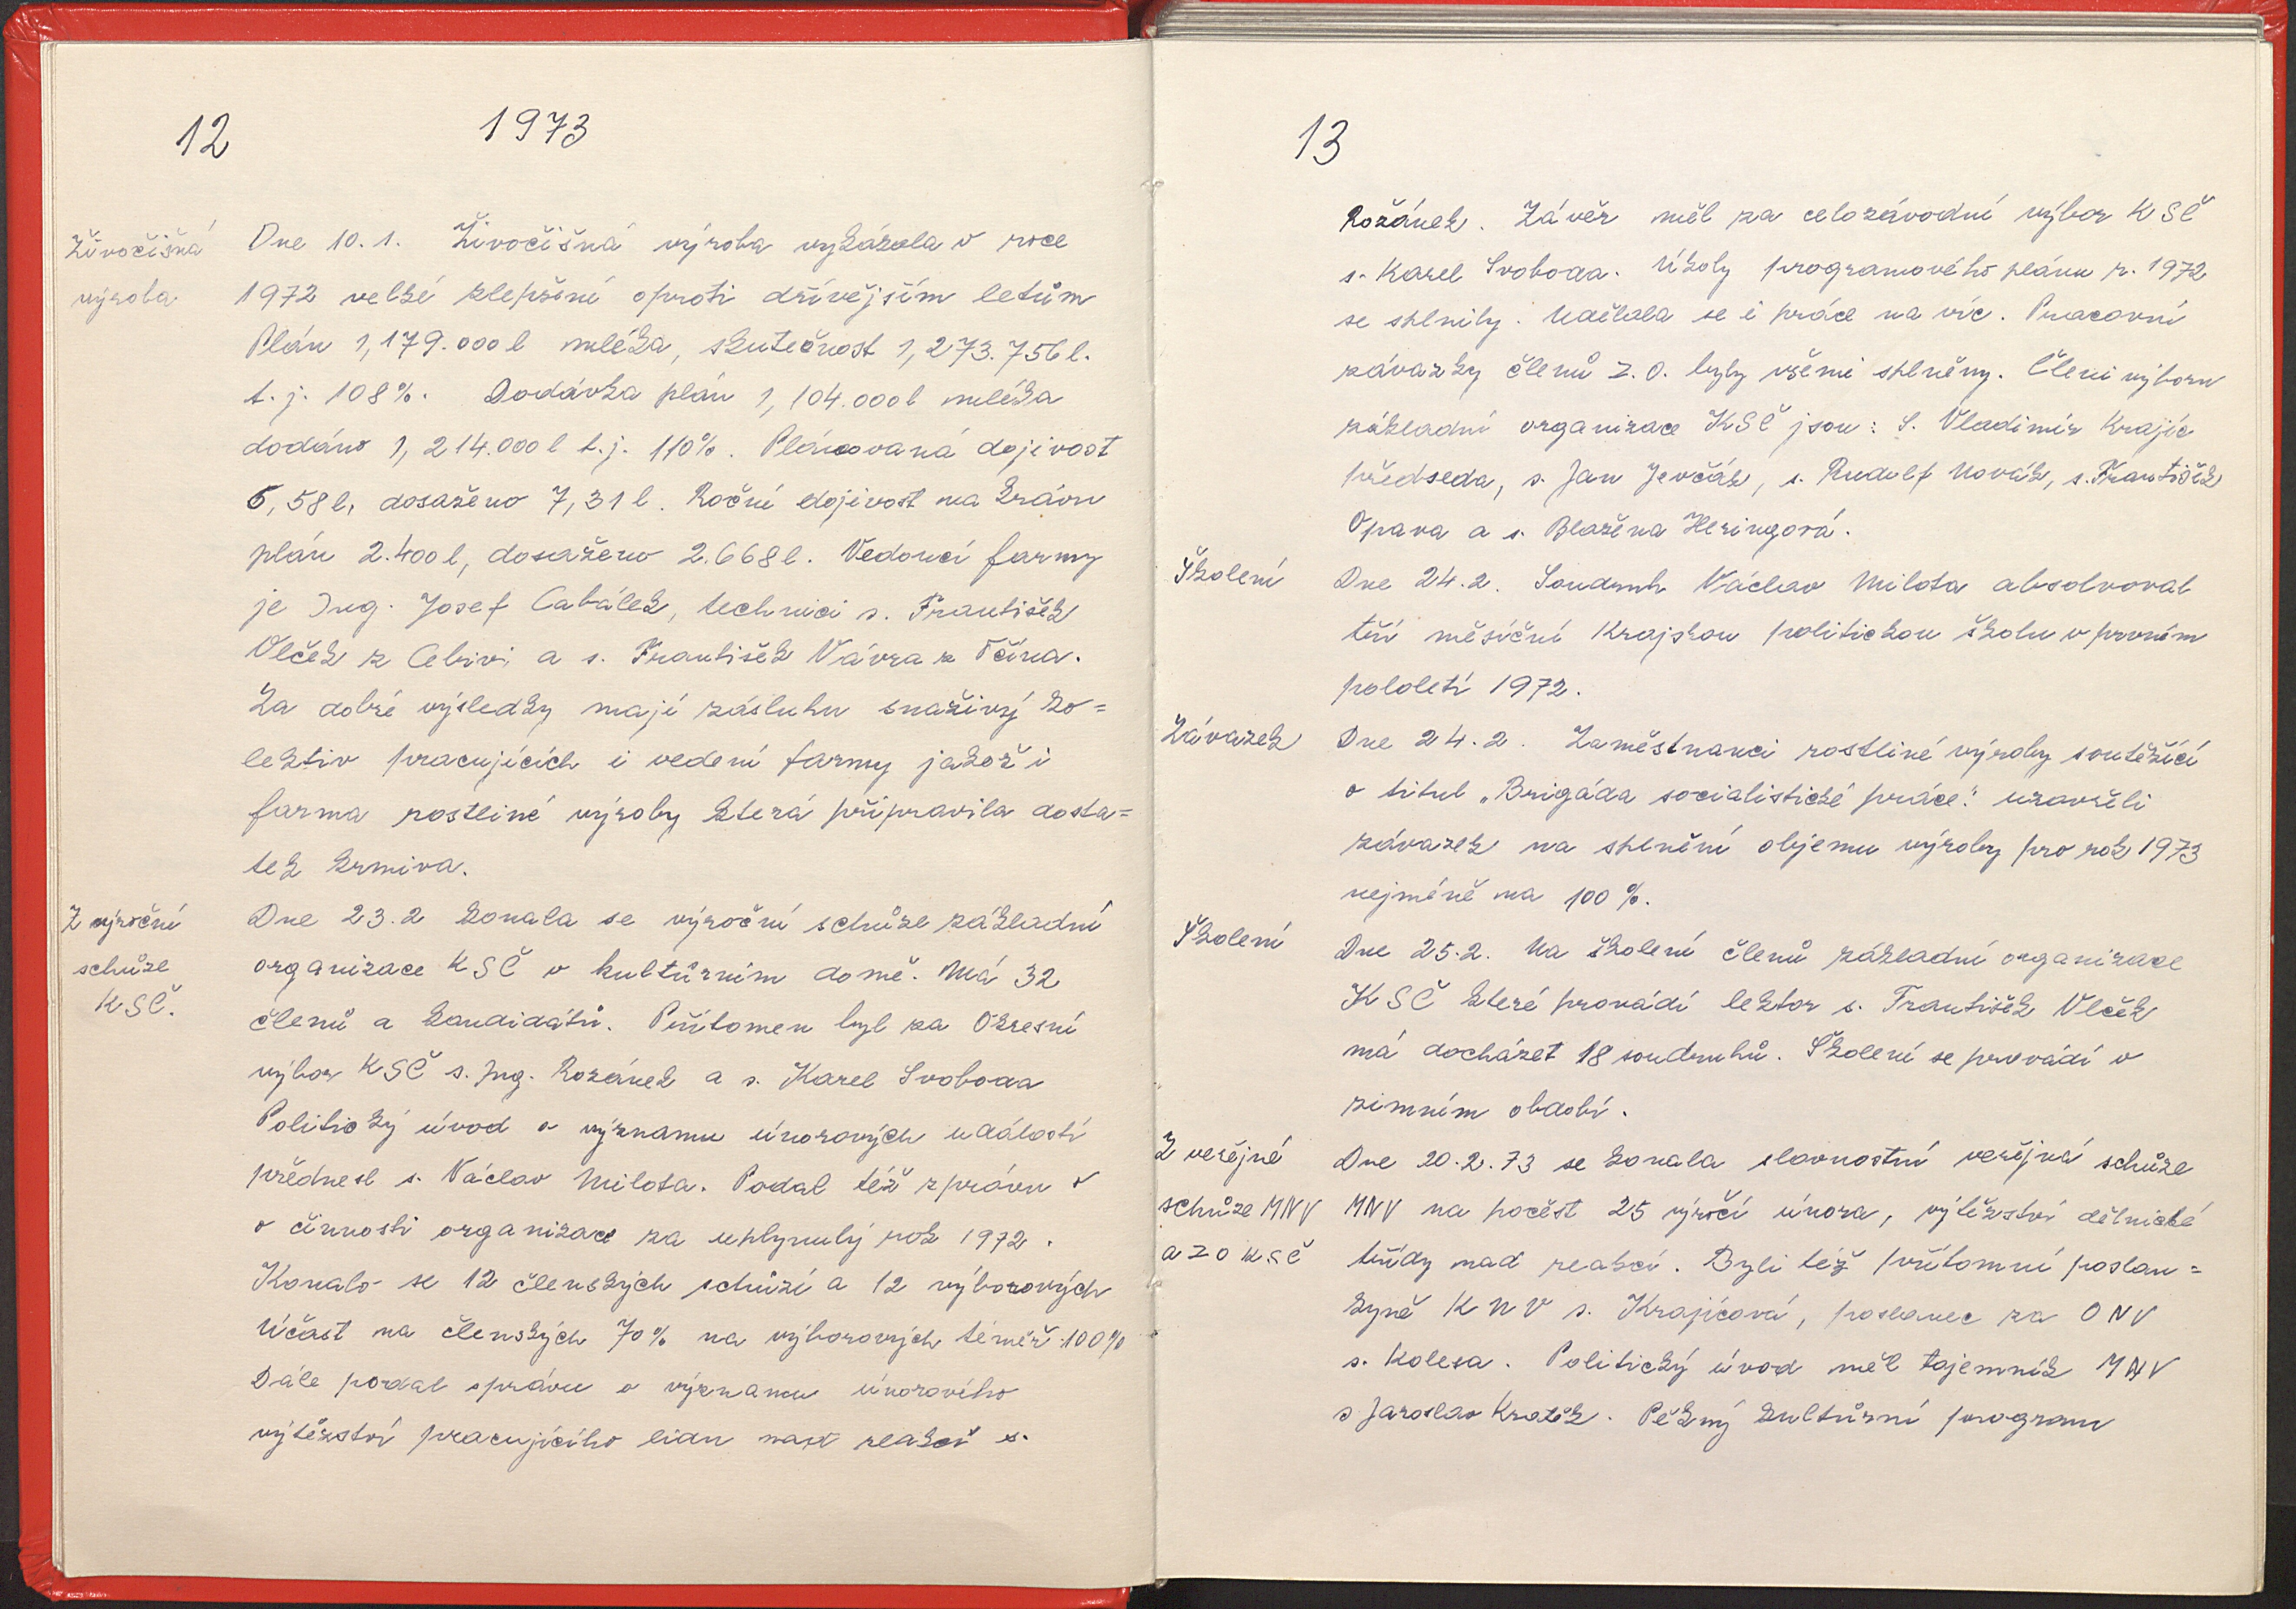 12
1973
Živočišná
výroba
Dne 10. 1. Živočišná výroba vykázala v roce
1972 velké zlepšení oproti dřívějším letům
Plán 1,179.000 l mléka, skutečnost 1,273.756 l.
t. j. 108 %. Dodávka plán 1,104.000 l mléka
dodáno 1,214.000 l t. j. 110 %. Plánovaná dojivost
6,58 l, dosaženo 7,31 l. Roční dojivost na krávu
plán 2.400 l, dosaženo 2.668 l. Vedoucí farmy
je Ing. Josef Cabálek, technici s. František
Vlček z Cebivi a s. František Vávra z
Za dobré výsledky mají zásluhu snaživý ko=
lektiv pracujících i vedení farmy jakož i
farma rostliné výroby která připravila dosta=
tek krmiva.
Z výroční
schůze
KSČ.
Dne 23. 2 konala se výroční schůze základní
organizace KSČ v kultůrním domě. Má 32
členů a kandidátů. Přítomen byl za Okresní
výbor KSČ s. Ing. Rozánek a s. Karel Svoboda
Politický úvod o významu únorových událostí
přednesl s. Václav Milota. Podal též zprávu o
o činnosti organizace za uplynulý rok 1972.
Konalo se 12 členských schůzí a 12 výborových
Účast na členských 70 % na výborových téměř 100 %
Dále podal správu o významu únorového
vítězství pracujícího lidu nad reakcí s.
13
Rožánek. Závěr měl za celozávodní výbor KSČ
s. Karel Svoboda. Úkoly programového plánu r. 1972
se splnily. Udělala se i práce na víc. Pracovní
závazky členů Z. O. byly všemi splněny. Členi výboru
základní organizace KSČ jsou: S. Vladimír Krajíc
předseda, s. Jan Jevčák, s. Rudolf Novák, s. František
Opava a s. Blažena Heringová.
Školení
Dne 24. 2. Soudruh Václav Milota absolvoval
tří měsíční Krajskou politickou školu v prvním
pololetí 1972.
Závazek
Dne 24. 2. Zaměstnanci rostliné výroby soutěžící
o titul „Brigáda socialistické práce." uzavřeli
závazek na splnění objemu výroby pro rok 1973
nejméně na 100 %.
Školení
Dne 25. 2. Na školení členů základní organizace
KSČ které provádí lektor s. František Vlček
má docházet 18 soudruhů. Školení se provádí v
zimním období.
Z veřejné
schůze MNV
a ZO KSČ
Dne 20. 2. 73 se konala slavnostní veřejná schůze
MNV na počest 25 výročí února, výtězství dělnické
třídy nad reakcí. Byli též přítomní poslan=
kyně KNV s. Krajícová, poslanec za ONV
s. Kolesa. Politický úvod měl tajemník MNV
s Jaroslav Kratěk. Pěkný kultůrní program